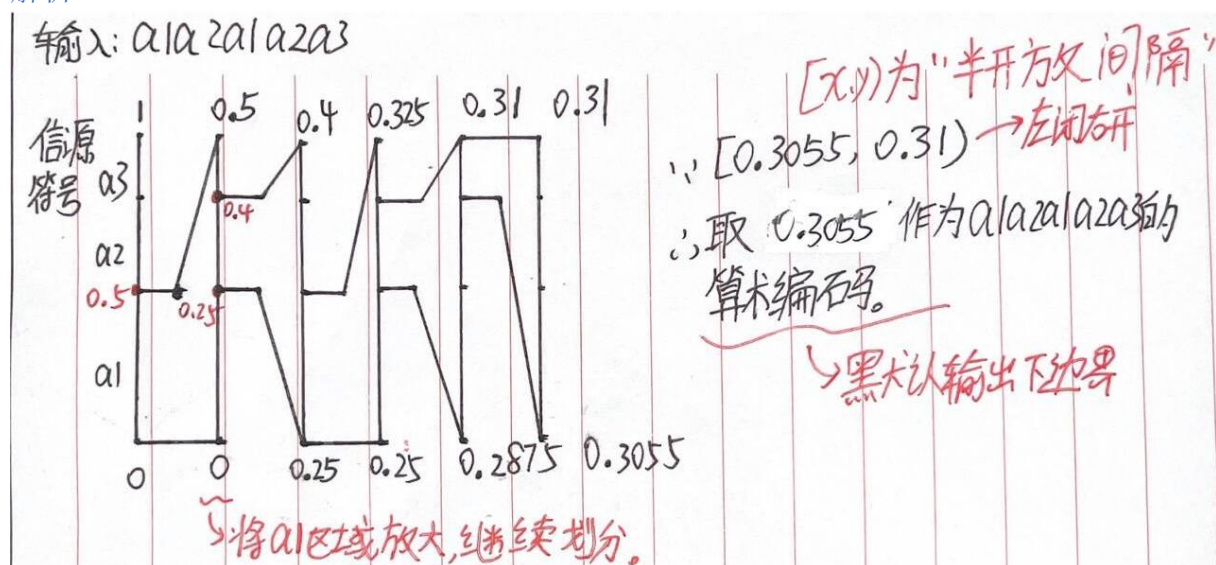 输入: a1a2a1a2a3
信源
符号
a3
a2
a1
1
0.5
0.4
0.325
0.31
0.31
0.4
0.5
0.25
0
0
0.25
0.25
0.2875
0.3055
将a1区域放大,继续划分。
[x,y)为"半开放间隔"
∵ [0.3055, 0.31) →左闭右开
∴取 0.3055 作为a1a2a1a2a3的
算术编码。
默认输出下边界